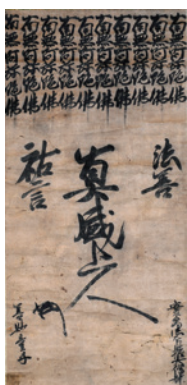 南無阿弥陀佛
南無阿弥陀佛
南無阿弥陀佛
南無阿弥陀佛
南無阿弥陀佛
南無阿弥陀佛
南無阿弥陀佛
南無阿弥陀佛
南無阿弥陀佛
南無阿弥陀佛
法善
真盛上人
祐言